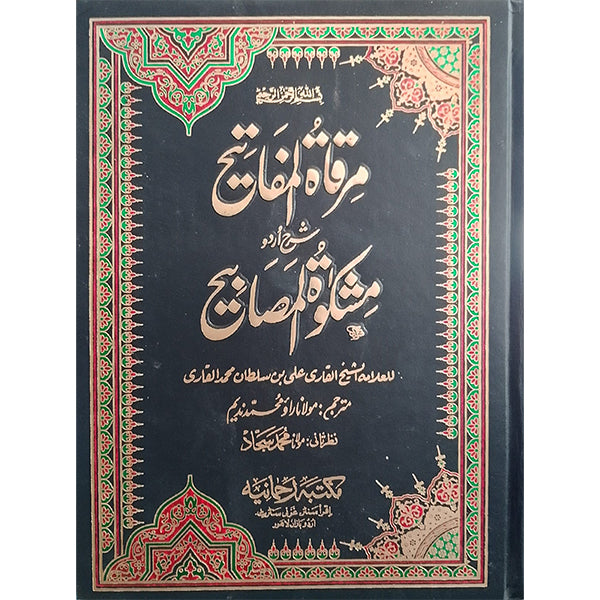 بسم اللہ الرحمن الرحیم
مرقاۃ المفاتیح
شرح اردو
مشکوٰۃ المصابیح
للعلامہ الشیخ القاری علی بن سلطان محمد القاری
مترجم: مولانا راؤ محمد ندیم
نظرثانی: مولانا محمد سجاد
مکتبہ رحمانیہ
اقرأ سنٹر غزنی سٹریٹ
اردو بازار لاہور